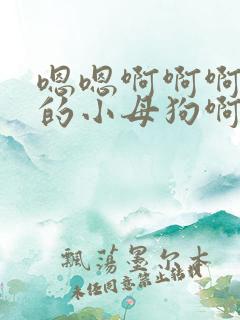 嗯嗯啊啊啊
的小母狗啊
飘荡墨尔本
未经同意禁止转载